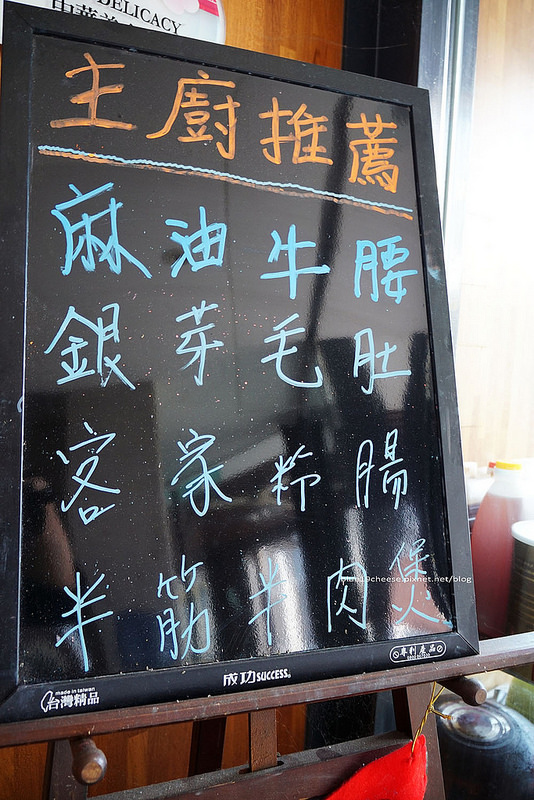 DELICACY
主廚推薦
麻油牛腰
銀芽毛肚
客家粉腸
半筋半肉煲
blue19cheese.pixnet.net/blog
made in taiwan
台灣精品
成功 SUCCESS®
專利產品